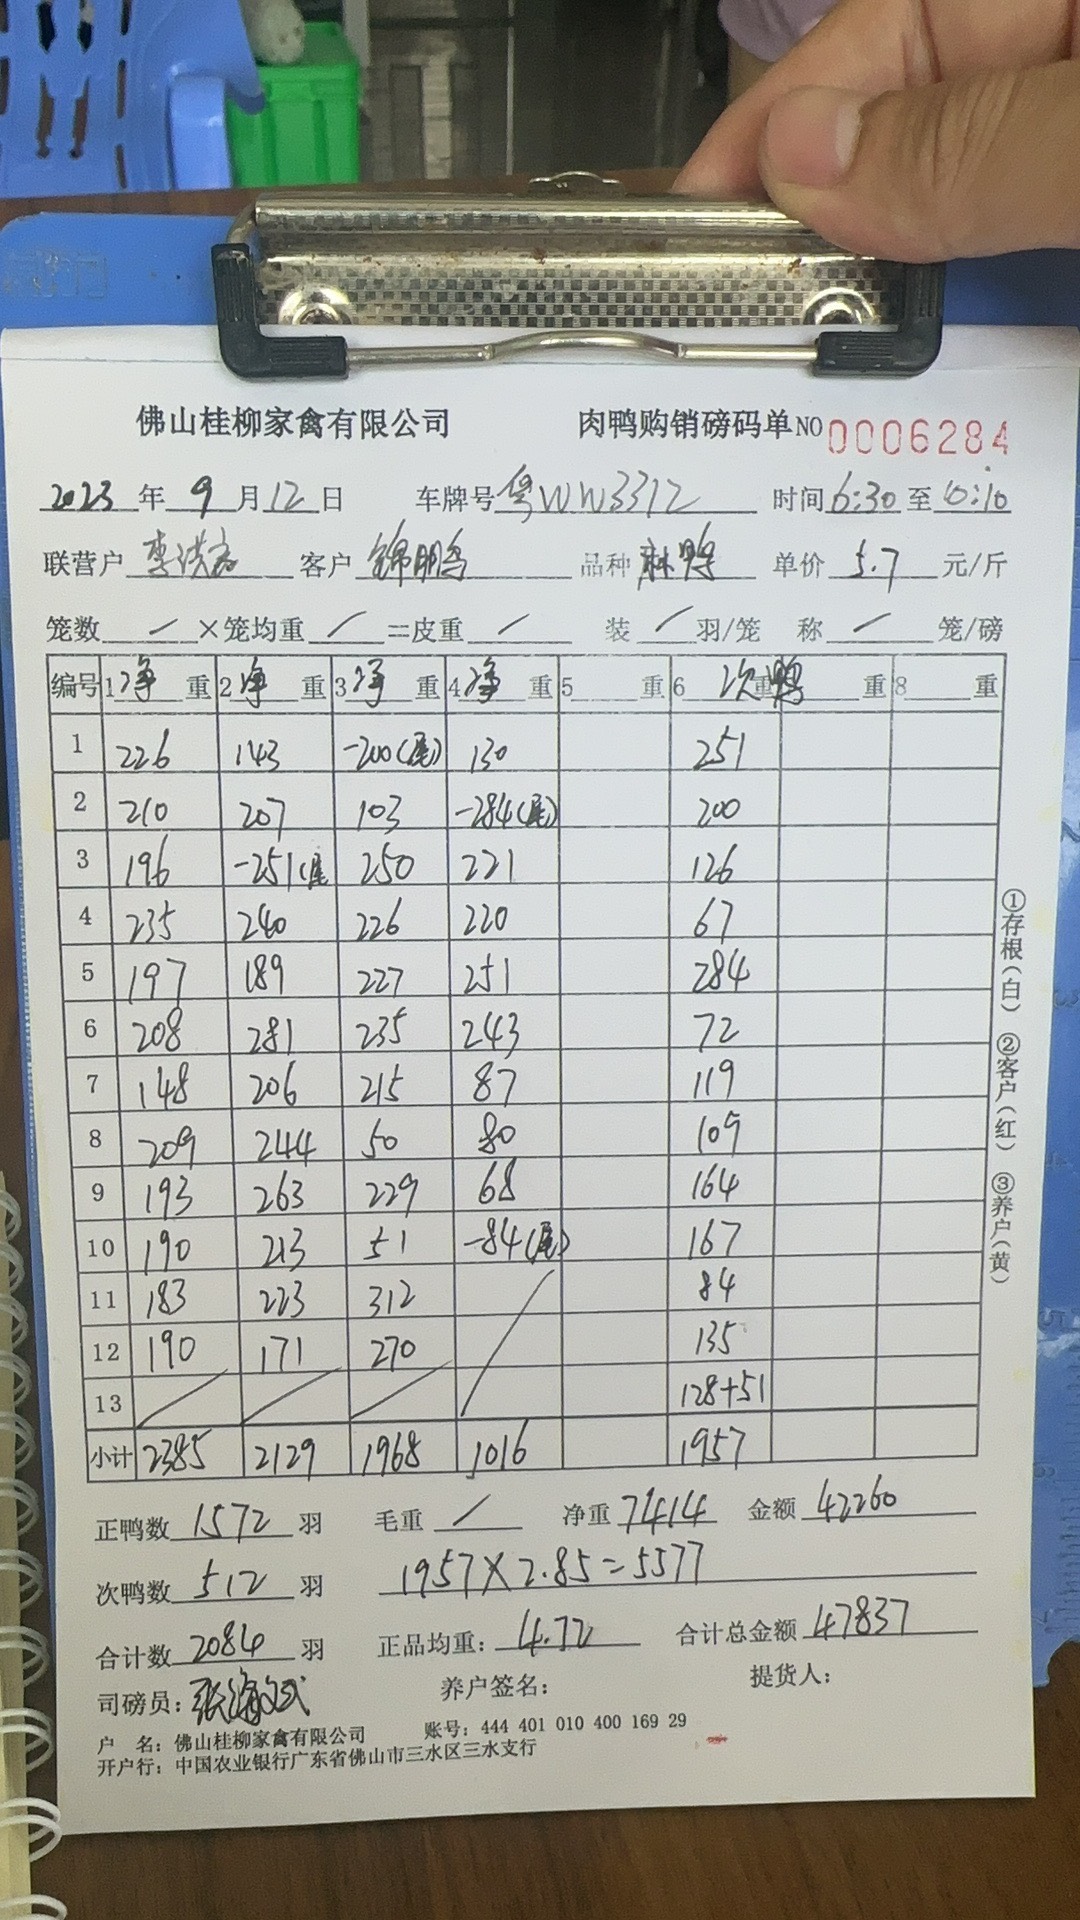 佛山桂柳家禽有限公司 肉鸭购销磅码单NO 0006284
2023年9月12日 车牌号粤WW3312 时间6:30至10:10
联营户 李洪 客户 锦鹏 品种 麻鸭 单价 5.7 元/斤
笼数 / ×笼均重 / =皮重 / 装 / 羽/笼 称 / 笼/磅
编号 1净重 2净重 3净重 4净重 5 重 6 次鸭 重 重 8 重
1 226 143 -200(尾) 130 251
2 210 207 103 -284(尾) 200
3 196 -251(尾 250 221 126
4 235 240 226 220 67
5 197 189 227 251 284
6 208 281 235 243 72
7 148 206 215 87 119
8 209 244 50 80 109
9 193 263 229 68 164
10 190 213 51 -84(尾) 167
11 183 223 312 84
12 190 171 270 135
13 128+51
小计 2385 2129 1968 1016 1957
正鸭数 1572 羽 毛重 / 净重 7414 金额 42260
次鸭数 512 羽 1957×2.85=5577
合计数 2084 羽 正品均重: 4.72 合计总金额 47837
司磅员:张海 养户签名: 提货人:
户 名: 佛山桂柳家禽有限公司 账号: 444 401 010 400 169 29
开户行: 中国农业银行广东省佛山市三水区三水支行
①存根(白) ②客户(红) ③养户(黄)